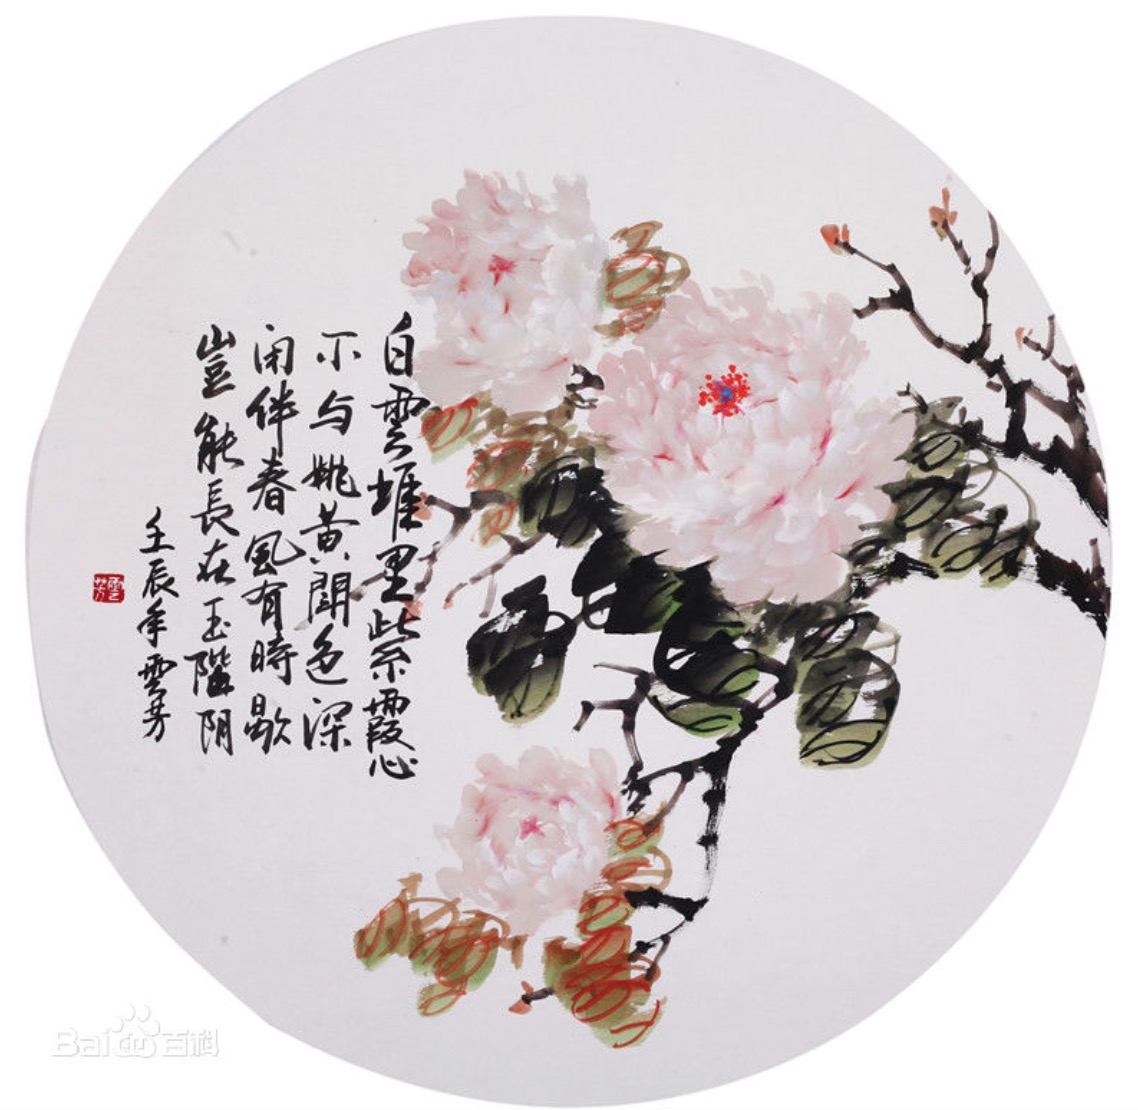 白雲堆里紫霞心
不与姚黄鬪色深
闲伴春風有時歇
豈能長在玉階阴
壬辰年雲芳
雲芳
Baidu百科